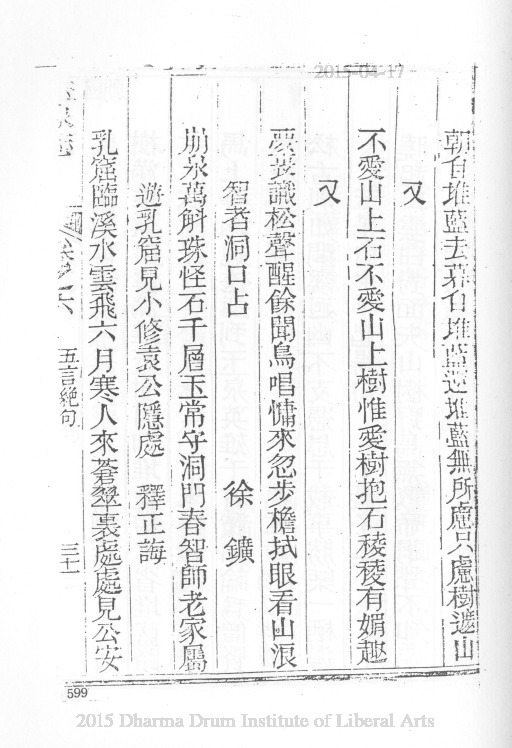 2015-04-17
朝自堆藍去暮自堆藍返堆藍無所慮只慮樹遮山
又
不愛山上石不愛山上樹惟愛樹抱石稜稜有媚趣
又
裏識松聲醒餘聞鳥唱慵來忽步檐拭眼看山浪
智者洞口占 徐鑛
崩泉萬斛珠怪石千層玉常守洞門春智師老家屬
遊乳窟見小修袁公隱處 釋正誨
乳窟臨溪水雲飛六月寒人來蒼翠裏處處見公安
卷之六 五言絕句 三十
599
2015 Dharma Drum Institute of Liberal Arts